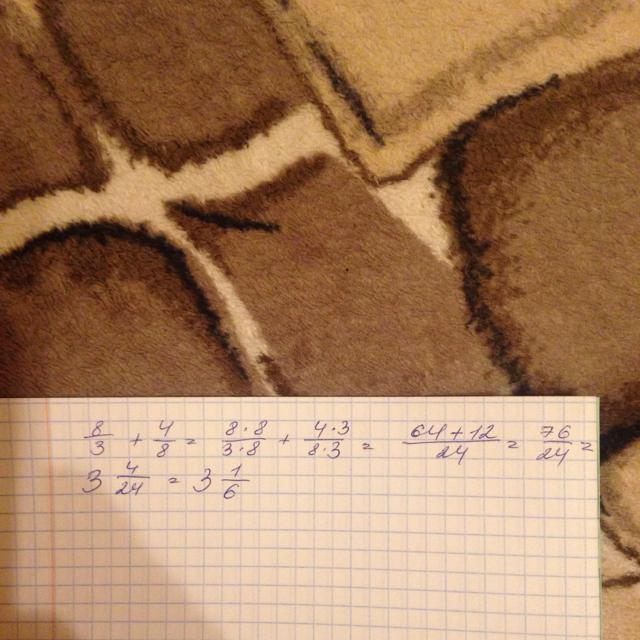 8/3 + 4/8 = 8·8/3·8 + 4·3/8·3 = 64+12/24 = 76/24 =
3 4/24 = 3 1/6